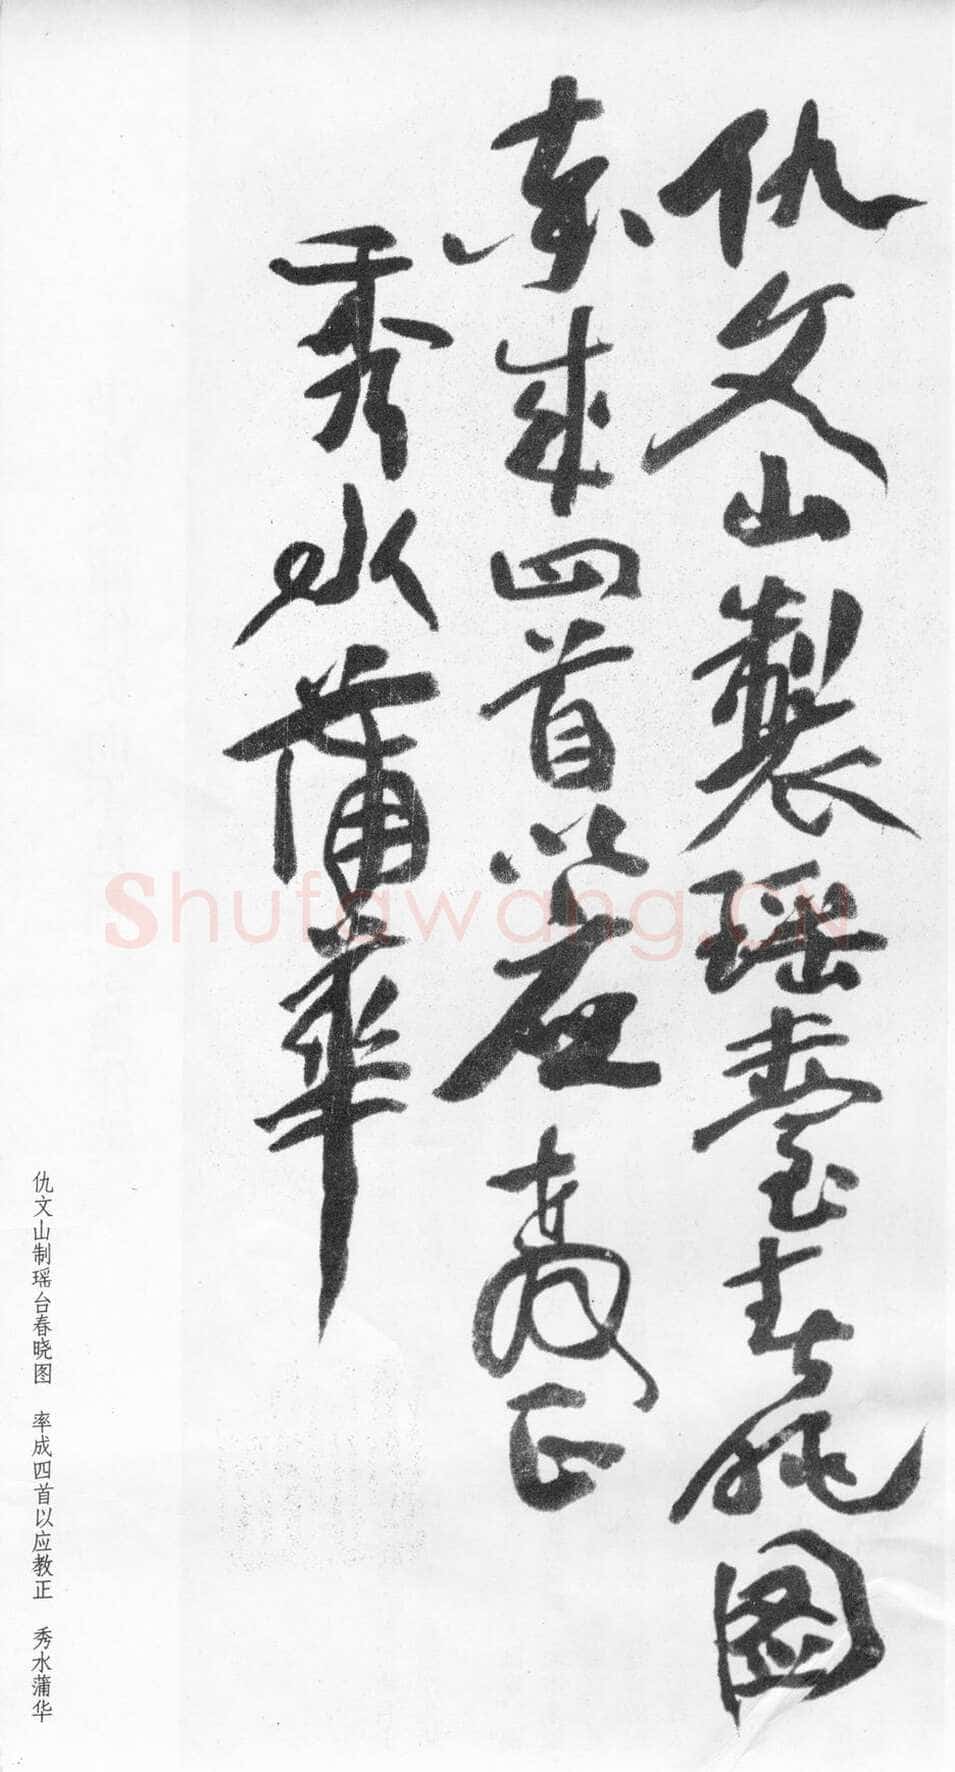 仇文山製瑶臺春曉圖
率成四首以应教正
秀水蒲華
仇文山制瑶台春晓图 率成四首以应教正 秀水蒲华
Shufawang.CN